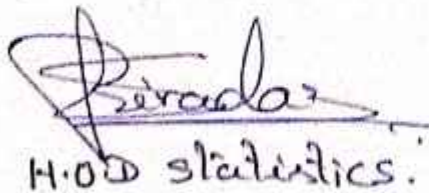 Biradar
H.O.D statistics.